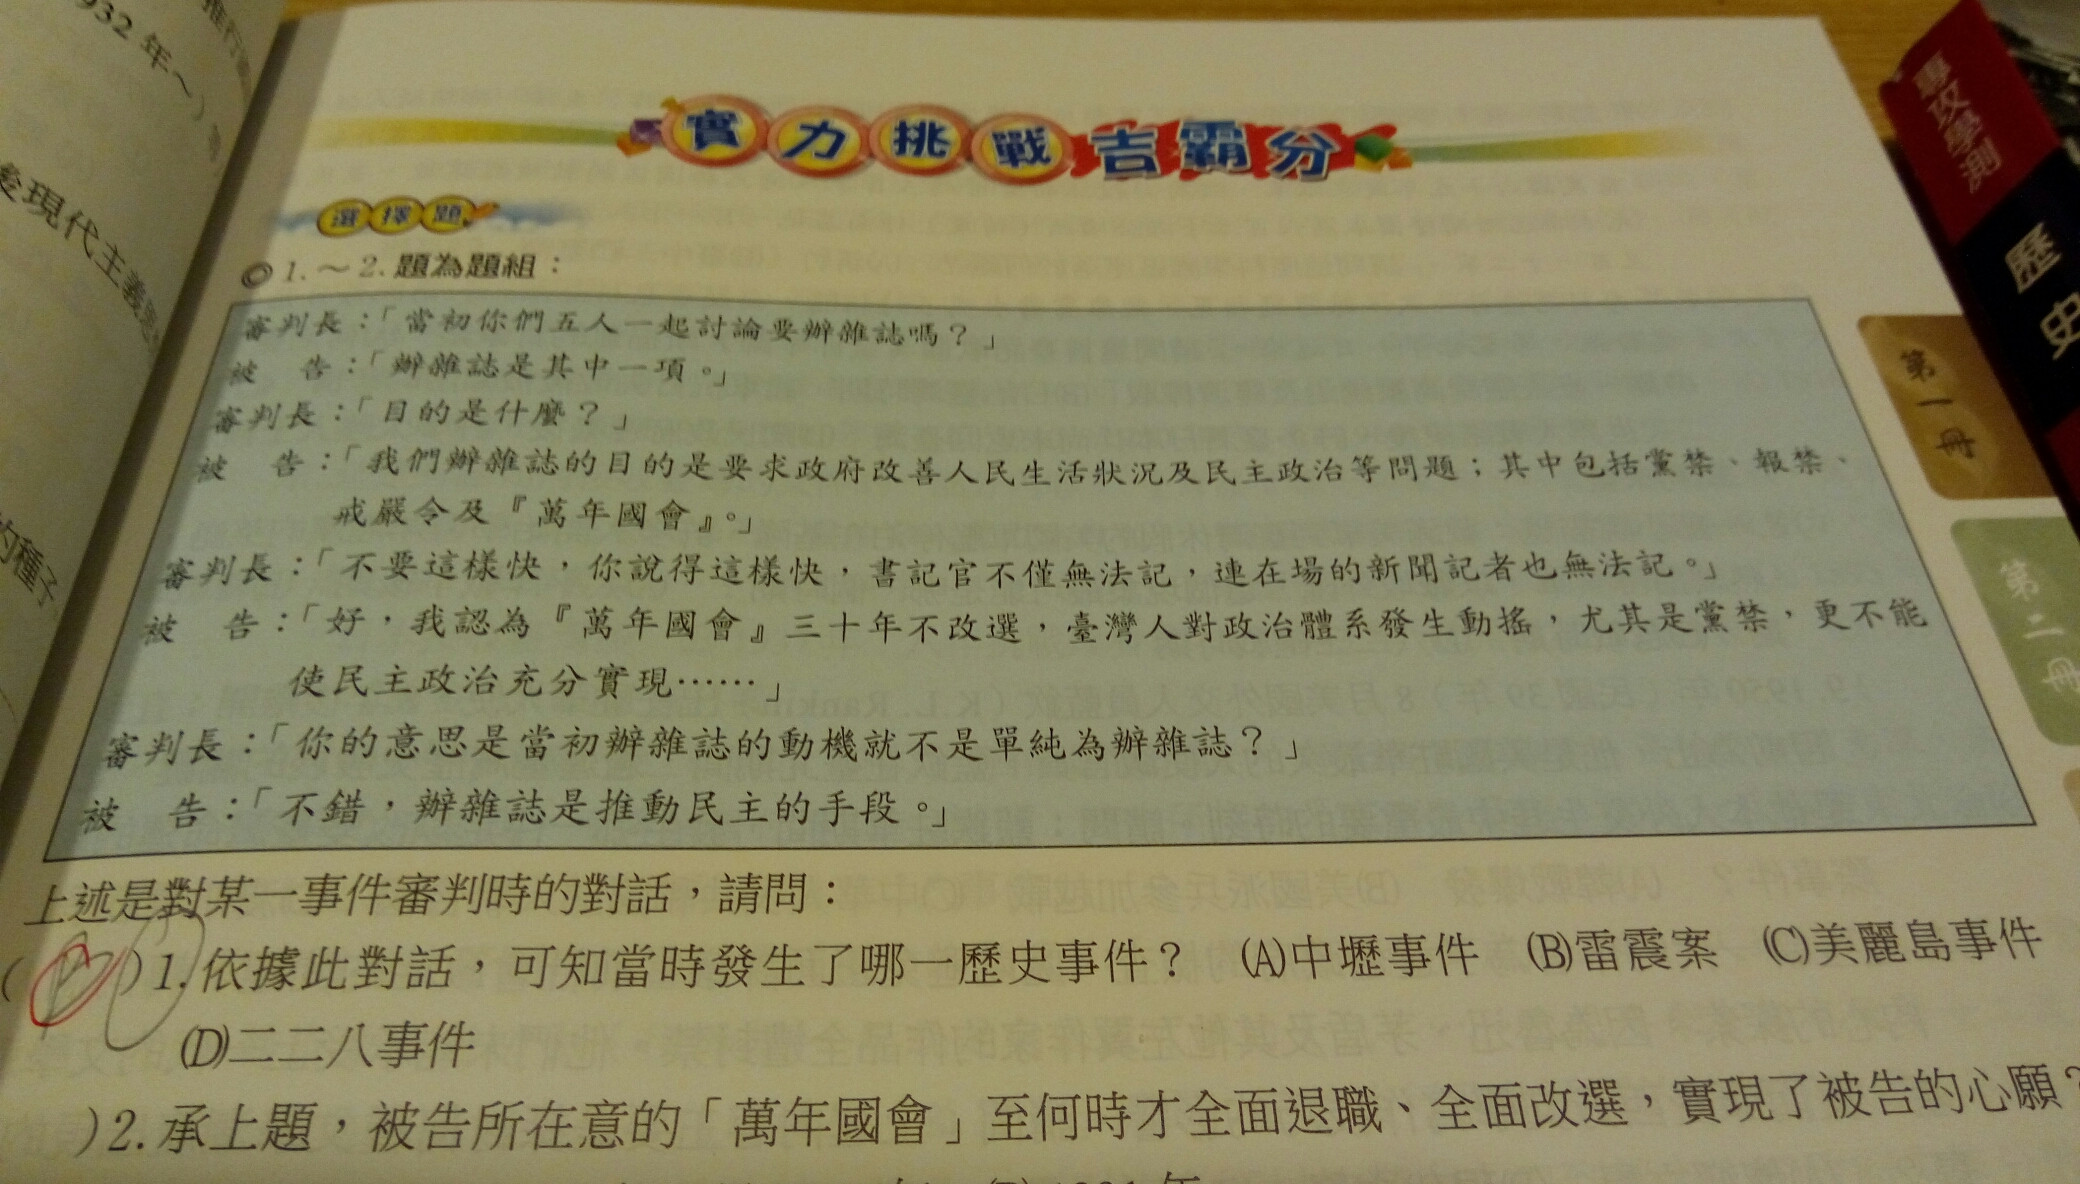 932年～）
後現代主義思
的種子
實力挑戰吉霸分
專攻學測
歷史
第一冊
第二冊
選擇題
◎1.～2.題為題組：
審判長：「當初你們五人一起討論要辦雜誌嗎？」
被　告：「辦雜誌是其中一項。」
審判長：「目的是什麼？」
被　告：「我們辦雜誌的目的是要求政府改善人民生活狀況及民主政治等問題；其中包括黨禁、報禁、
戒嚴令及『萬年國會』。」
審判長：「不要這樣快，你說得這樣快，書記官不僅無法記，連在場的新聞記者也無法記。」
被　告：「好，我認為『萬年國會』三十年不改選，臺灣人對政治體系發生動搖，尤其是黨禁，更不能
使民主政治充分實現……」
審判長：「你的意思是當初辦雜誌的動機就不是單純為辦雜誌？」
被　告：「不錯，辦雜誌是推動民主的手段。」
上述是對某一事件審判時的對話，請問：
(　)1.依據此對話，可知當時發生了哪一歷史事件？　(A)中壢事件　(B)雷震案　(C)美麗島事件
(D)二二八事件
)2.承上題，被告所在意的「萬年國會」至何時才全面退職、全面改選，實現了被告的心願？